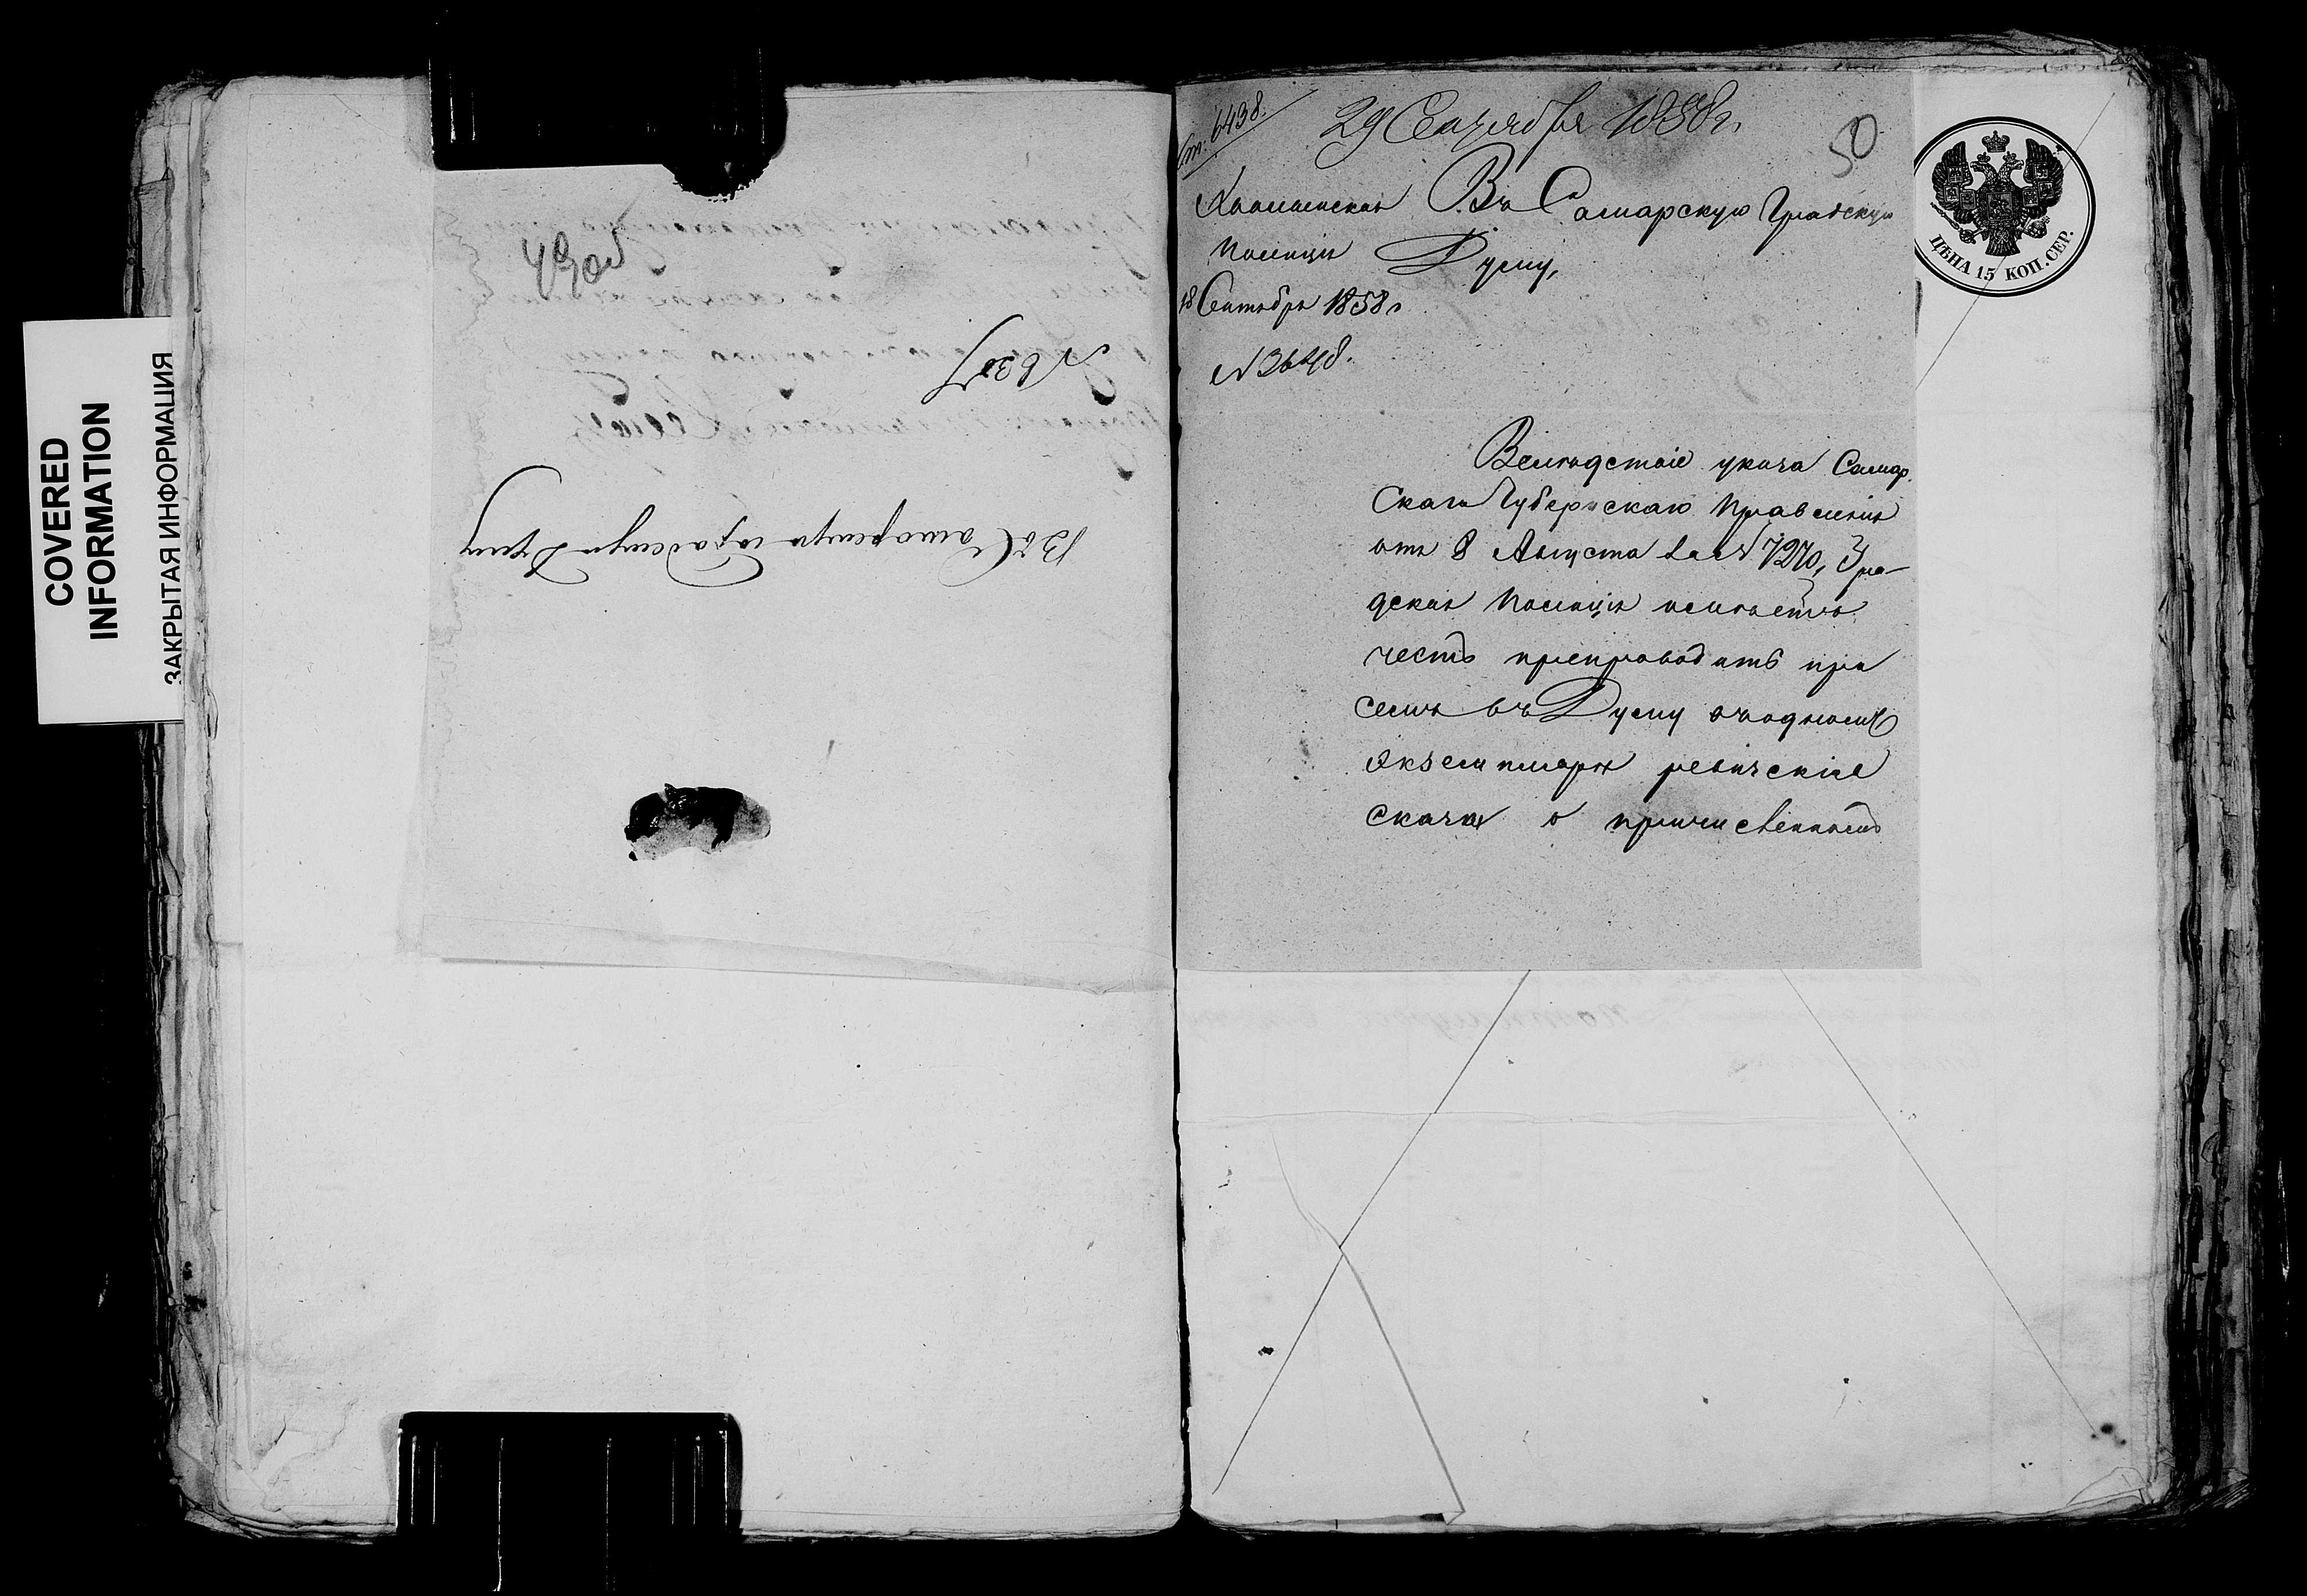 COVERED
INFORMATION
ЗАКРЫТАЯ ИНФОРМАЦИЯ
49об
№ 630
Въ Самарскую Градскую Думу
6438.
29 Сентября 1858 г.
50
Въ Самарскую Градскую
Полиція Думу,
18 Сентября 1858 г
№ 3648.
ЦѢНА 15 КОП. СЕР.
Вслѣдствіе указа Самар.
скаго Губернскаго Правленія
отъ 8 Августа за № 7270, Гра-
дская Полиція имѣетъ
честь препроводить при
семъ въ Думу въ одномъ
экземплярѣ ревизскія
сказки о причисленныхъ